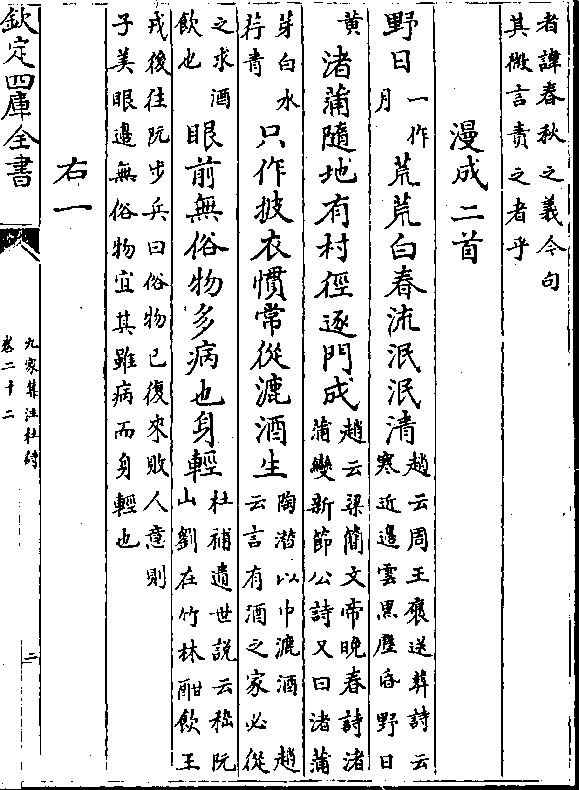 者諱春秋之義今句
其微言責之者乎
漫成二首
野日一作月荒荒白春流泯泯清趙云周王褒送葬詩云寒近邊雲黒塵昏野日
黄渚蒲隨地有村徑逐門成趙云梁簡文帝晚春詩渚蒲變新節公詩又曰渚蒲
芽白水荇青只作披衣慣常從漉酒生陶潛以巾漉酒趙云言有酒之家必從
之求酒飲也眼前無俗物多病也身輕杜補遺世説云嵇阮山劉在竹林酣飲王
戎後往阮步兵曰俗物已復來敗人意則
子美眼邊無俗物宜其雖病而身輕也
右一
欽定四庫全書
九家集注杜詩
卷二十二
二